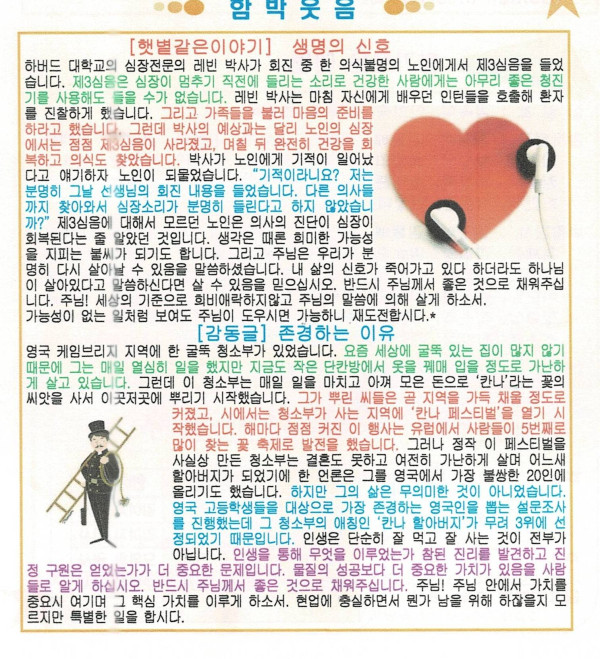 함박웃음
[햇볕같은이야기] 생명의 신호
하버드 대학교의 심장전문의 레빈 박사가 회진 중 한 의식불명의 노인에게서 제3심음을 들었
습니다. 제3심음은 심장이 멈추기 직전에 들리는 소리로 건강한 사람에게는 아무리 좋은 청진
기를 사용해도 들을 수가 없습니다. 레빈 박사는 마침 자신에게 배우던 인턴들을 호출해 환자
를 진찰하게 했습니다. 그리고 가족들을 불러 마음의 준비를
하라고 했습니다. 그런데 박사의 예상과는 달리 노인의 심장
에서는 점점 제3심음이 사라졌고, 며칠 뒤 완전히 건강을 회
복하고 의식도 찾았습니다. 박사가 노인에게 기적이 일어났
다고 얘기하자 노인이 되물었습니다. “기적이라니요? 저는
분명히 그날 선생님의 회진 내용을 들었습니다. 다른 의사들
까지 찾아와서 심장소리가 분명히 들린다고 하지 않았습니
까?” 제3심음에 대해서 모르던 노인은 의사의 진단이 심장이
회복된다는 줄 알았던 것입니다. 생각은 때론 희미한 가능성
을 지피는 불씨가 되기도 합니다. 그리고 주님은 우리가 분
명히 다시 살아날 수 있음을 말씀하셨습니다. 내 삶의 신호가 죽어가고 있다 하더라도 하나님
이 살아있다고 말씀하신다면 살 수 있음을 믿으십시오. 반드시 주님께서 좋은 것으로 채워주십
니다. 주님! 세상의 기준으로 희비애락하지않고 주님의 말씀에 의해 살게 하소서.
가능성이 없는 일처럼 보여도 주님이 도우시면 가능하니 재도전합시다.*
[감동글] 존경하는 이유
영국 케임브리지 지역에 한 굴뚝 청소부가 있었습니다. 요즘 세상에 굴뚝 있는 집이 많지 않기
때문에 그는 매일 열심히 일을 했지만 지금도 작은 단칸방에서 옷을 꿰매 입을 정도로 가난하
게 살고 있습니다. 그런데 이 청소부는 매일 일을 마치고 아껴 모은 돈으로 ‘칸나’라는 꽃의
씨앗을 사서 이곳저곳에 뿌리기 시작했습니다. 그가 뿌린 씨들은 곧 지역을 가득 채울 정도로
커졌고, 시에서는 청소부가 사는 지역에 ‘칸나 페스티벌’을 열기 시
작했습니다. 해마다 점점 커진 이 행사는 유럽에서 사람들이 5번째로
많이 찾는 꽃 축제로 발전을 했습니다. 그러나 정작 이 페스티벌을
사실상 만든 청소부는 결혼도 못하고 여전히 가난하게 살며 어느새
할아버지가 되었기에 한 언론은 그를 영국에서 가장 불쌍한 20인에
올리기도 했습니다. 하지만 그의 삶은 무의미한 것이 아니었습니다.
영국 고등학생들을 대상으로 가장 존경하는 영국인을 뽑는 설문조사
를 진행했는데 그 청소부의 애칭인 ‘칸나 할아버지’가 무려 3위에 선
정되었기 때문입니다. 인생은 단순히 잘 먹고 잘 사는 것이 전부가
아닙니다. 인생을 통해 무엇을 이루었는가 참된 진리를 발견하고 진
정 구원은 얻었는가가 더 중요한 문제입니다. 물질의 성공보다 더 중요한 가치가 있음을 사람
들로 알게 하십시오. 반드시 주님께서 좋은 것으로 채워주십니다. 주님! 주님 안에서 가치를
중요시 여기며 그 핵심 가치를 이루게 하소서. 현업에 충실하면서 뭔가 남을 위해 하잖을지 모
르지만 특별한 일을 합시다.